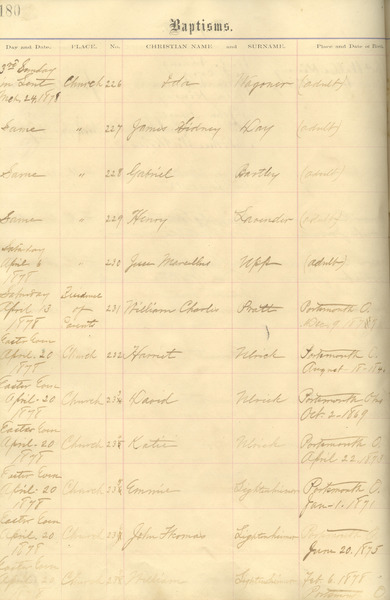 180
Baptisms.
Day and Date. PLACE. No. CHRISTIAN NAME and SURNAME. Place and Date of Birth.
3rd Sunday
in Lent Church 226 Ida Wagoner (adult)
Mch. 24, 1878
Same " 227 James Sidney Day (adult)
Same " 228 Gabriel Bartley (adult)
Same " 229 Henry Lavender (adult)
Saturday
April 6 " 230 Marcellus Upp (adult)
1878
Saturday Residence
April 13 of 231 William Charles Pratt Portsmouth O.
1878 Parents
Easter Even
April 20 Church 232 Harriet Ulrick Portsmouth O.
1878 August
Easter Even
April 20 Church David Ulrick Portsmouth
1878 Oct. 2. 1869
Easter Even
April 20 Church Katie Ulrick Portsmouth O.
1878 April 22
Easter Even
April 20 Church Emmie Portsmouth O.
1878 Jan. 1.
Easter Even
April 20 John Thomas
1878 June 20. 1875
Easter Even
April 20 Church William Feb 6. 1878